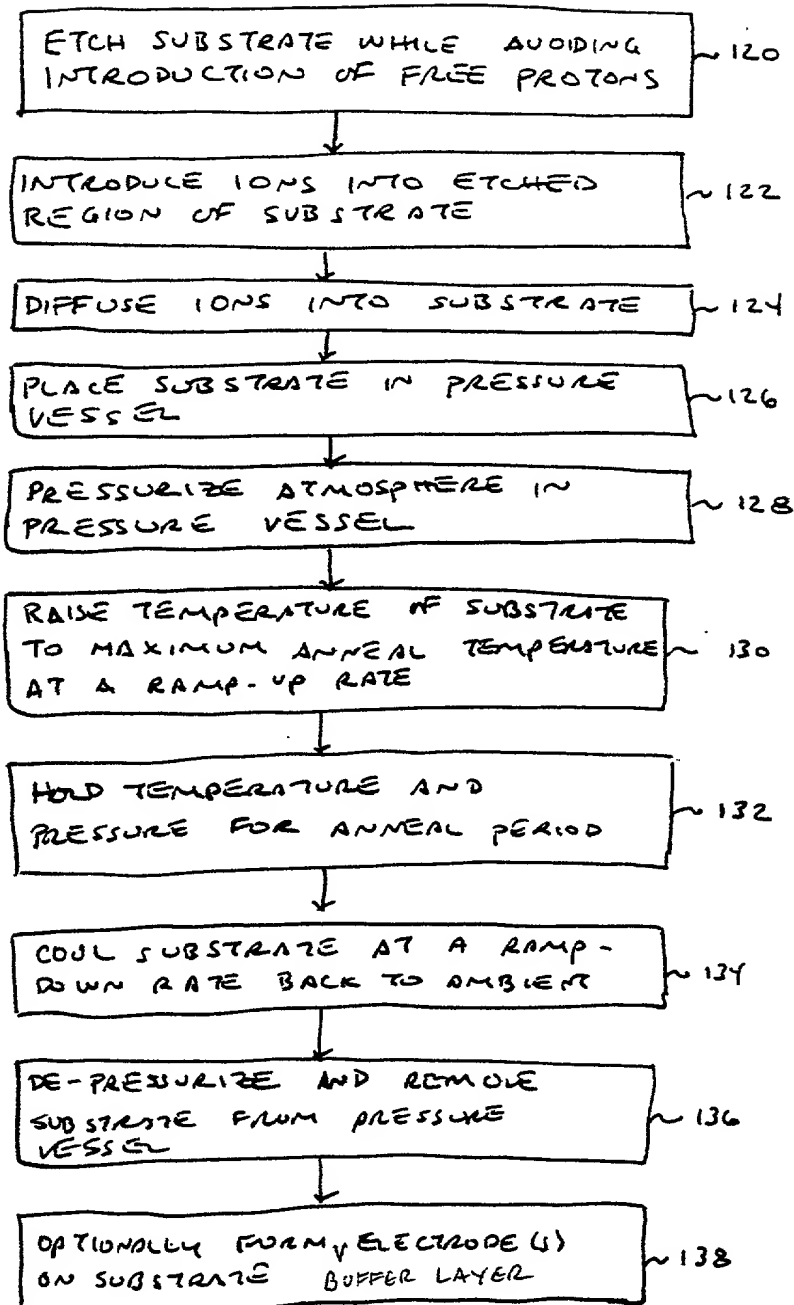 ETCH SUBSTRATE WHILE AVOIDING
INTRODUCTION OF FREE PROTONS
~ 120
INTRODUCE IONS INTO ETCHED
REGION OF SUBSTRATE
~ 122
DIFFUSE IONS INTO SUBSTRATE
~ 124
PLACE SUBSTRATE IN PRESSURE
VESSEL
~ 126
PRESSURIZE ATMOSPHERE IN
PRESSURE VESSEL
~ 128
RAISE TEMPERATURE OF SUBSTRATE
TO MAXIMUM ANNEAL TEMPERATURE
AT A RAMP-UP RATE
~ 130
HOLD TEMPERATURE AND
PRESSURE FOR ANNEAL PERIOD
~ 132
COOL SUBSTRATE AT A RAMP-
DOWN RATE BACK TO AMBIENT
~ 134
DE-PRESSURIZE AND REMOVE
SUBSTRATE FROM PRESSURE
VESSEL
~ 136
OPTIONALLY FORM ELECTRODE(S)
ON SUBSTRATE BUFFER LAYER
~ 138